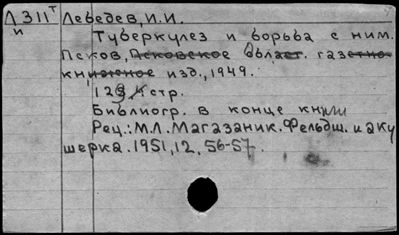 Л 311 т Лебедев, И.И.
и Туберкулез и борьба с ним.
Псков, Псковское област. газетно-
книжное изд., 1949.
123 стр.
Библиогр. в конце книги
Рец.: М.Л. Магазаник. Фельдш. и аку
шерка. 1951, 12, 56-57.